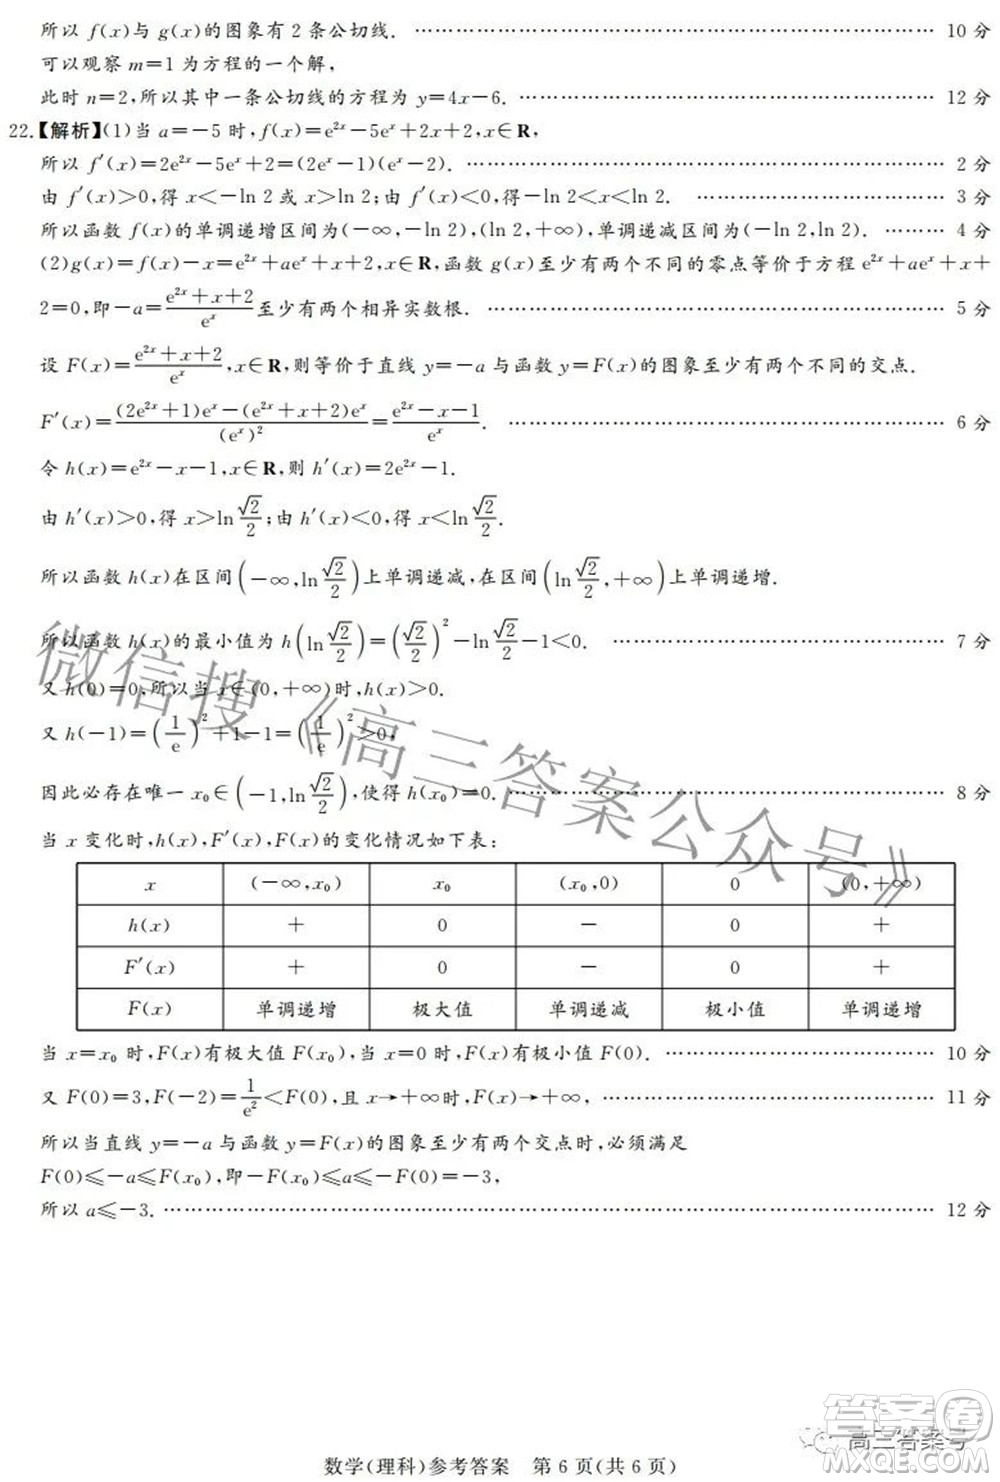 所以 f(x)与 g(x)的图象有 2 条公切线. …… 10 分
可以观察 m=1 为方程的一个解,
此时 n=2,所以其中一条公切线的方程为 y=4x-6. …… 12 分
22.【解析】(1)当 a=-5 时,f(x)=e^{2x}-5e^x+2x+2,x∈R,
所以 f′(x)=2e^{2x}-5e^x+2=(2e^x-1)(e^x-2). …… 2 分
由 f′(x)>0,得 x<-ln 2 或 x>ln 2;由 f′(x)<0,得-ln 2<x<ln 2. …… 3 分
所以函数 f(x)的单调递增区间为(-∞,-ln 2),(ln 2,+∞),单调递减区间为(-ln 2,ln 2). …… 4 分
(2)g(x)=f(x)-x=e^{2x}+ae^x+x+2,x∈R,函数 g(x)至少有两个不同的零点等价于方程 e^{2x}+ae^x+x+
2=0,即-a=\frac{e^{2x}+x+2}{e^x}至少有两个相异实数根. …… 5 分
设 F(x)=\frac{e^{2x}+x+2}{e^x},x∈R,则等价于直线 y=-a 与函数 y=F(x)的图象至少有两个不同的交点.
F′(x)=\frac{(2e^{2x}+1)e^x-(e^{2x}+x+2)e^x}{(e^x)^2}=\frac{e^{2x}-x-1}{e^x}. …… 6 分
令 h(x)=e^{2x}-x-1,x∈R,则 h′(x)=2e^{2x}-1.
由 h′(x)>0,得 x>ln\frac{√2}{2};由 h′(x)<0,得 x<ln\frac{√2}{2}.
所以函数 h(x)在区间(-∞,ln\frac{√2}{2})上单调递减,在区间(ln\frac{√2}{2},+∞)上单调递增.
所以函数 h(x)的最小值为 h(ln\frac{√2}{2})=(\frac{√2}{2})^2-ln\frac{√2}{2}-1<0. …… 7 分
又 h(0)=0,所以当 x∈(0,+∞)时,h(x)>0.
又 h(-1)=(\frac{1}{e})^2+1-1=(\frac{1}{e})^2>0,
因此必存在唯一 x₀∈(-1,ln\frac{√2}{2}),使得 h(x₀)=0. …… 8 分
当 x 变化时,h(x),F′(x),F(x)的变化情况如下表:
x (-∞,x₀) x₀ (x₀,0) 0 (0,+∞)
h(x) + 0 - 0 +
F′(x) + 0 - 0 +
F(x) 单调递增 极大值 单调递减 极小值 单调递增
当 x=x₀ 时,F(x)有极大值 F(x₀),当 x=0 时,F(x)有极小值 F(0). …… 10 分
又 F(0)=3,F(-2)=\frac{1}{e^2}<F(0),且 x→+∞时,F(x)→+∞, …… 11 分
所以当直线 y=-a 与函数 y=F(x)的图象至少有两个交点时,必须满足
F(0)≤-a≤F(x₀),即-F(x₀)≤a≤-3,
所以 a≤-3. …… 12 分
微信搜《高三答案公众号》
答案卷
高三答案号
MXQE.COM
数学(理科)参考答案 第 6 页(共 6 页)